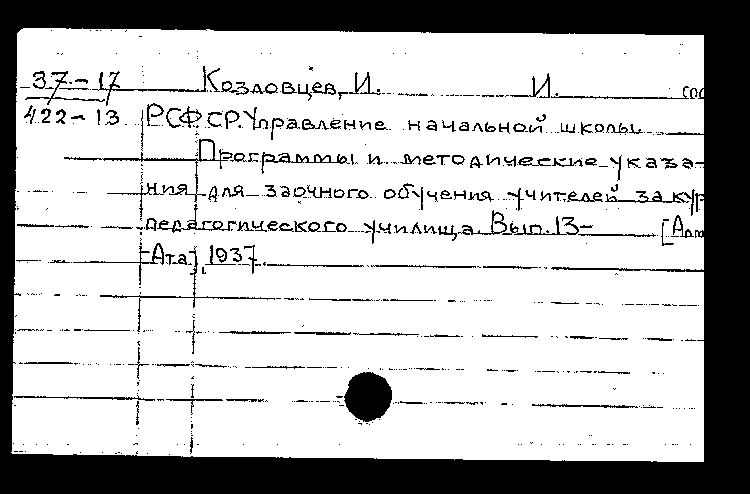 37-17 Козловцев, И. И. сос
422-13 РСФСР. Управление начальной школы.
Программы и методические указа-
ния для заочного обучения учителей за кур
педагогического училища. Вып. 13- [Алм
-Ата], 1937.